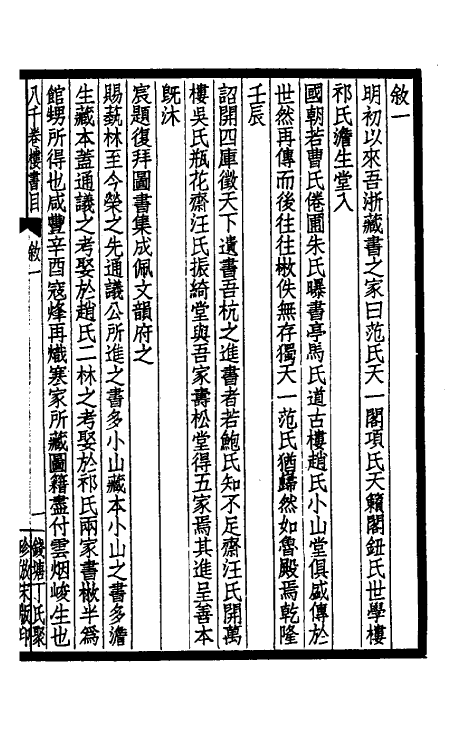 敘一
明初以來吾浙藏書之家曰范氏天一閣項氏天籟閣鈕氏世學樓
祁氏澹生堂入
國朝若曹氏倦圃朱氏曝書亭馬氏道古樓趙氏小山堂俱盛傳於
世然再傳而後往往散佚無存獨天一范氏猶歸然如魯殿焉乾隆
壬辰
詔開四庫徵天下遺書吾杭之進書者若鮑氏知不足齋汪氏開萬
樓吳氏瓶花齋汪氏振綺堂與吾家壽松堂得五家焉其進呈善本
既沐
宸題復拜圖書集成佩文韻府之
賜藝林至今榮之先通議公所進之書多小山藏本小山之書多澹
生藏本蓋通議之考娶於趙氏二林之考娶於祁氏兩家書散半爲
館甥所得也咸豐辛酉寇烽再熾寒家所藏圖籍盡付雲烟峻生也
八千卷樓書目 敘一 一 錢塘丁氏聚
珍倣宋版印